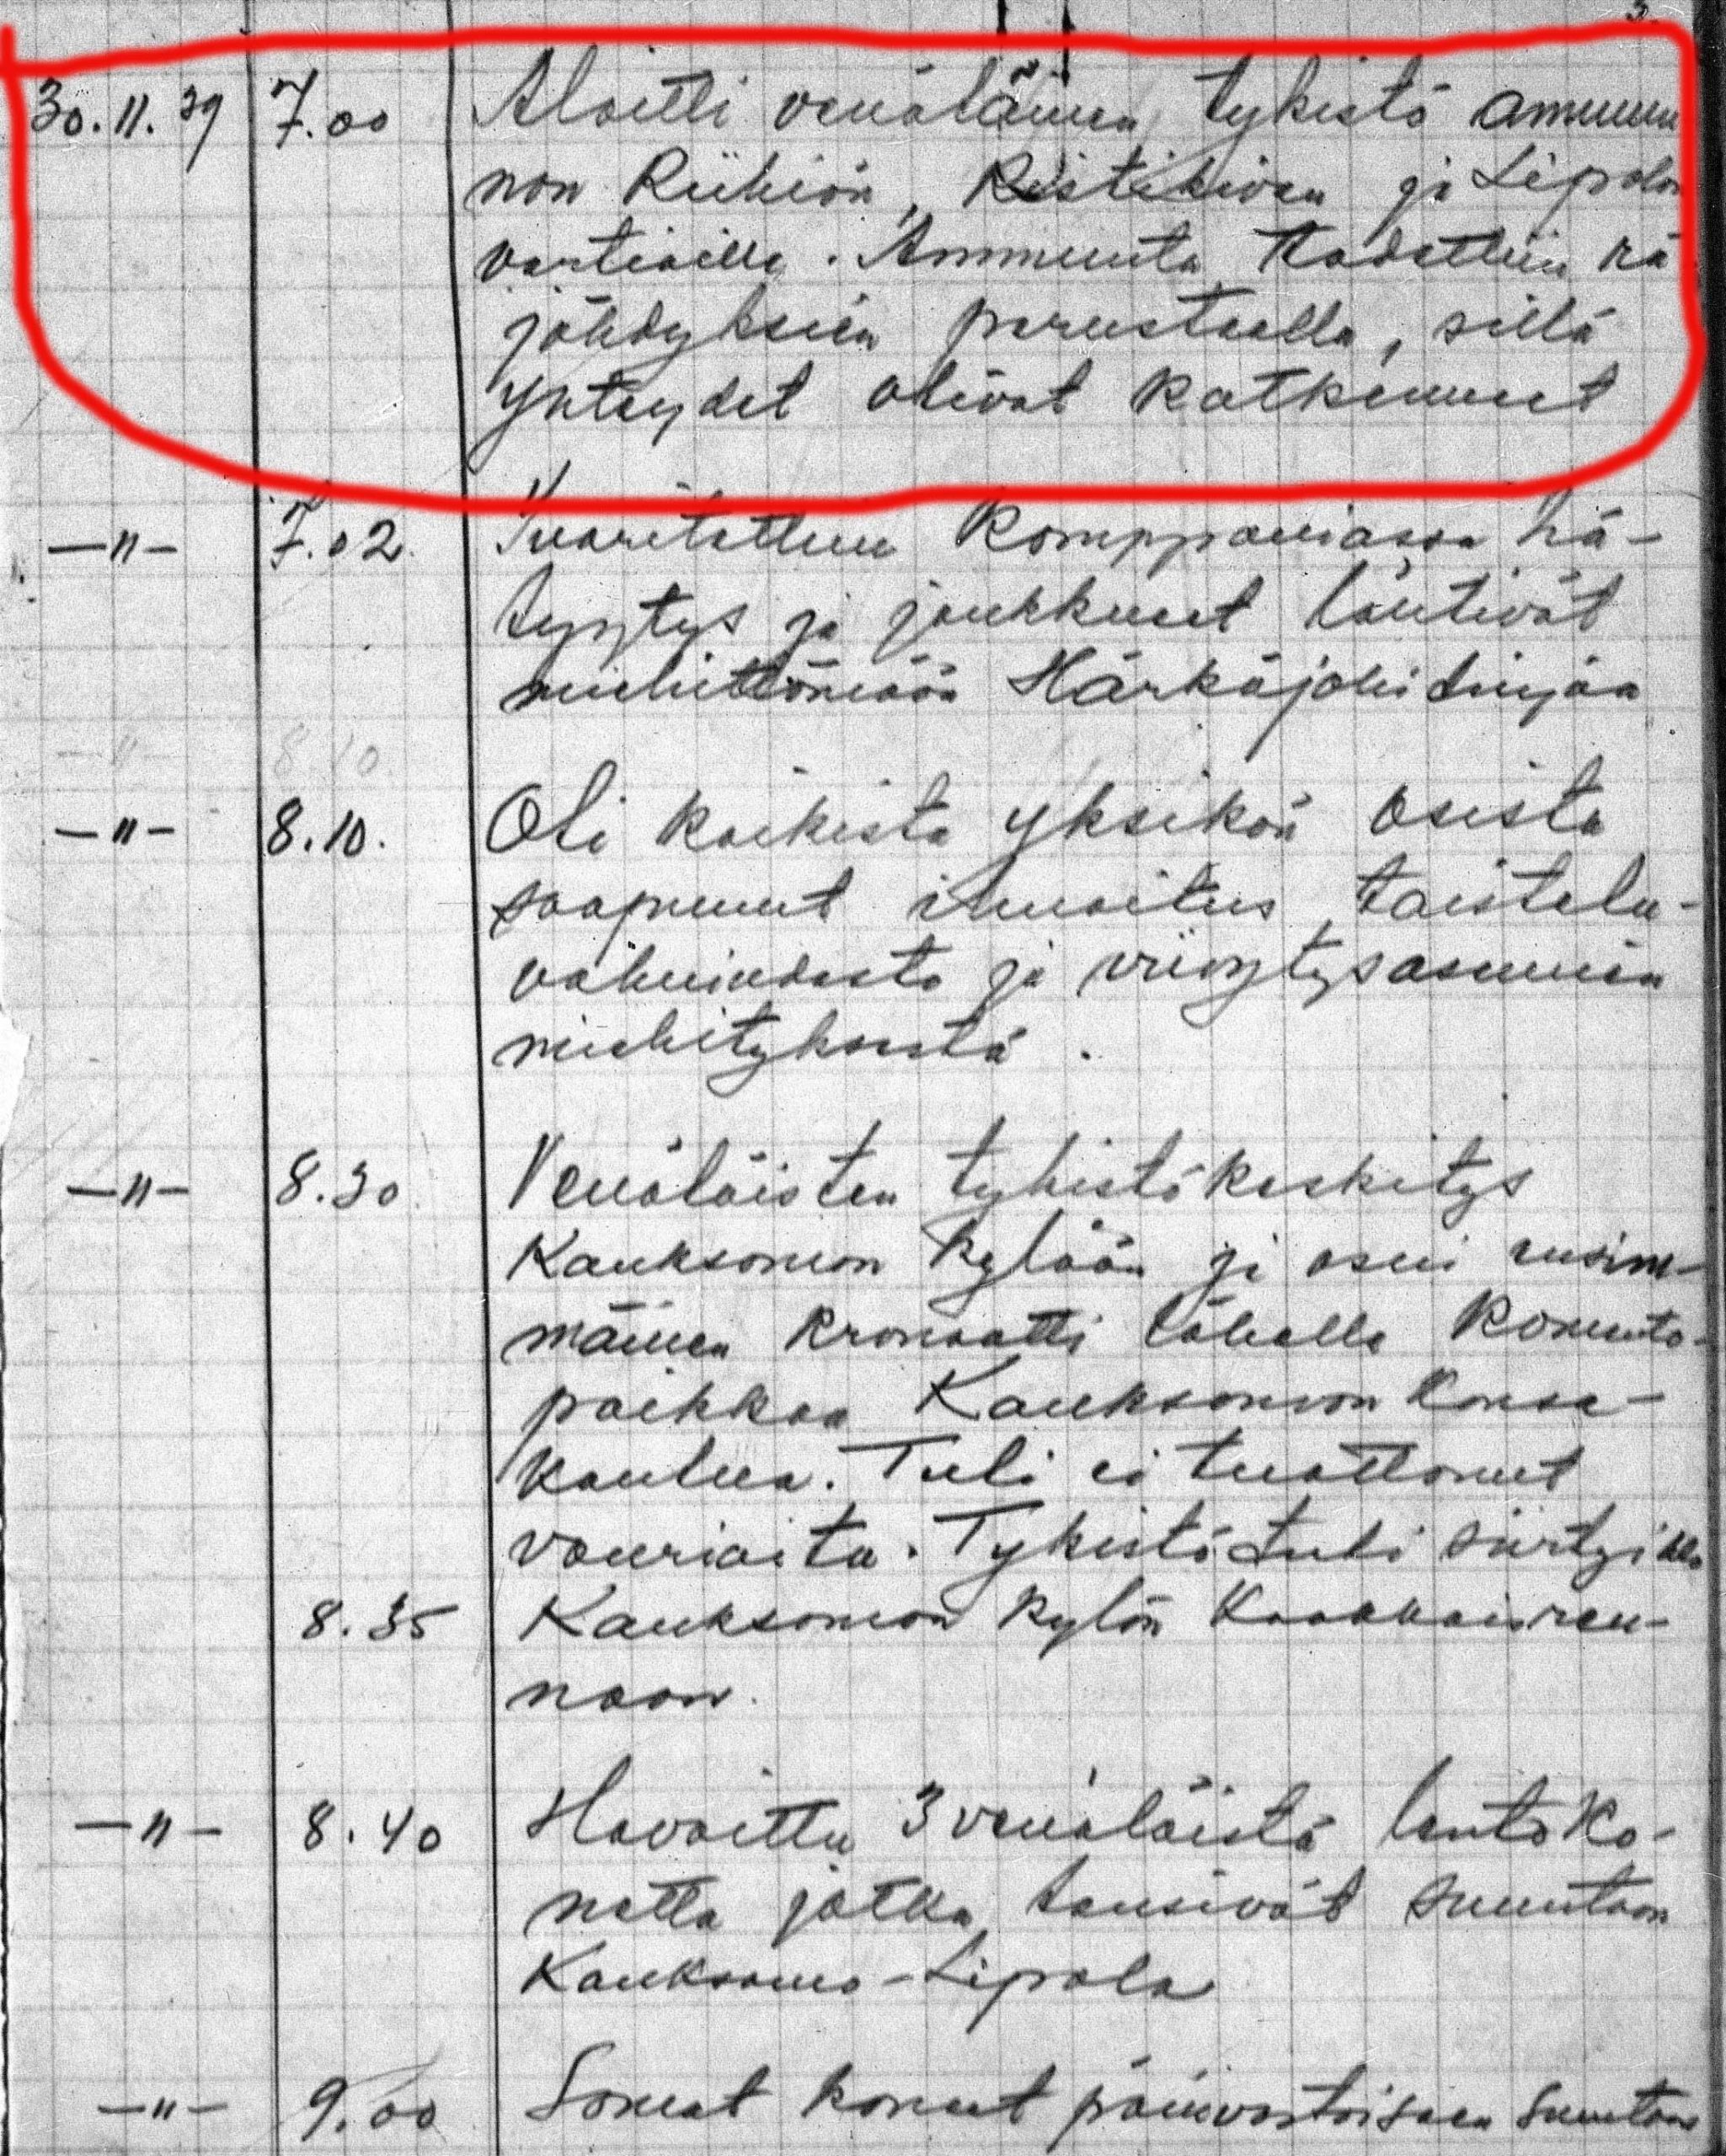 3.
30.11.39 7.00 Aloitti venäläinen tykistö ammun
non Riihiön, Ristikiven ja Lipolan
vartioille. Ammunta todettiin rä
jähdyksien perusteella, sillä
yhteydet olivat katkenneet
—"— 7.02. Suoritettiin komppaniassa hä-
lyytys ja joukkueet läntivät
miehittämään Härkäjoki linjaa
—"— 8.10.
—"— 8.10. Oli kaikista yksikön osista
saapunut ilmoitus taistelu-
valmiudesta ja viivytysasemien
miehityksestä.
—"— 8.30 Venäläisten tykistökeskitys
Kauksamon kylään ja osui ensim-
mäinen kranaatti lähelle komento-
paikkaa Kauksamon kansa-
koulua. Tuli ei tuottanut
vaurioita. Tykistötuli siirtyi klo
8.35 Kauksamon kylän kaakkoisreu-
naan.
—"— 8.40 Havaittu 3 venäläistä lentoko-
netta jotka lensivät suuntaan
Kauksamo-Lipola
—"— 9.00 Samat koneet päinvastaiseen suuntaan